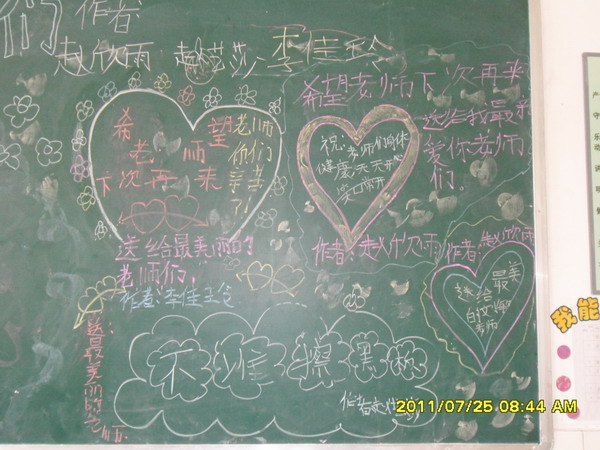 们
作者
赵欣雨 赵莎莎 李佳玲
希望
老师
下次再来
老师
你们
辛苦
了!
送给最美丽的
老师们,
作者:李佳玲
希望老师下次再来
送给我最亲
爱你老师
们。
祝:老师们身体
健康,天天开心
笑口常开
作者:赵欣雨
作者:赵欣雨
最美
送给
的
老师
送:
最美丽的老师
不 擦黑板
作者
2011/07/25 08:44 AM
我能